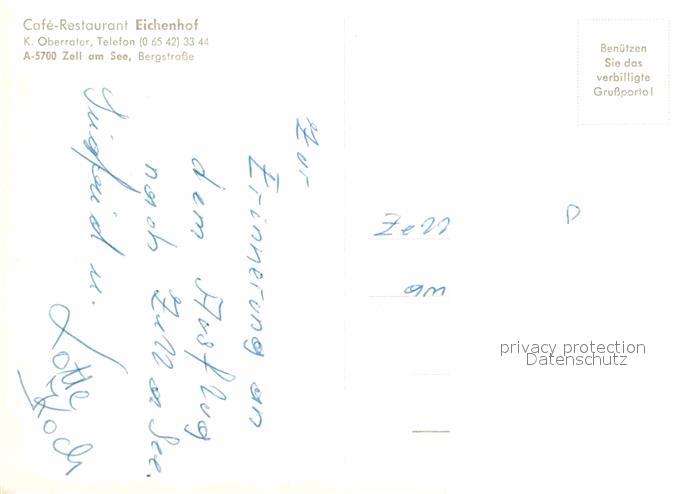 Café-Restaurant Eichenhof
K. Oberrater, Telefon (0 65 42) 33 44
A-5700 Zell am See, Bergstraße
Benützen
Sie das
verbilligte
Grußporto!
Zur
Erinnerung an
dem Ausflug
nach Zell a See.
Sigfrid u.
Lotte
Koch
Zell
am
D
privacy protection
Datenschutz